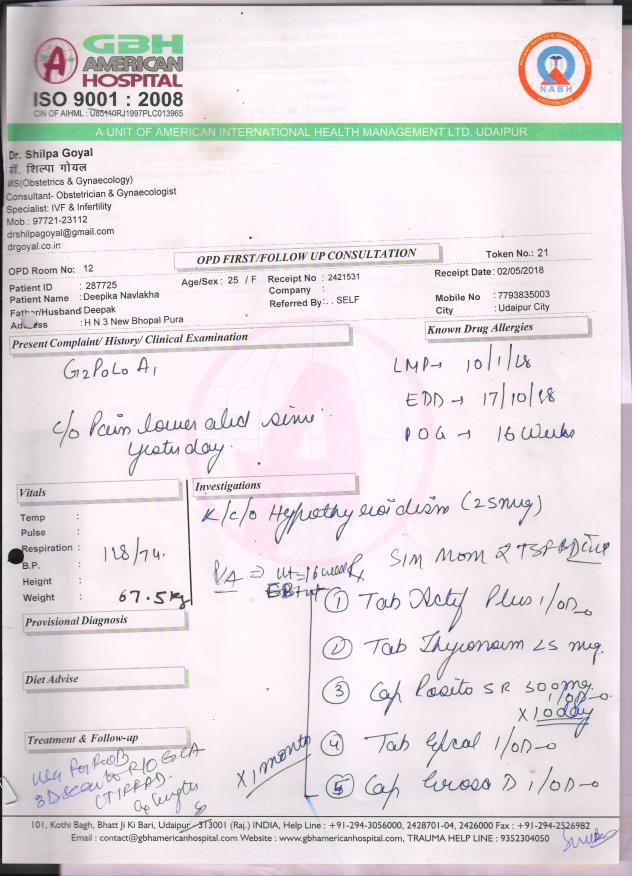 GBH
AMERICAN
HOSPITAL
ISO 9001 : 2008
CIN OF AIHML : U85140RJ1997PLC013965
PATIENT SAFETY & QUALITY OF CARE
NABH
ACCREDITED
A UNIT OF AMERICAN INTERNATIONAL HEALTH MANAGEMENT LTD. UDAIPUR
Dr. Shilpa Goyal
डॉ. शिल्पा गोयल
MS(Obstetrics & Gynaecology)
Consultant- Obstetrician & Gynaecologist
Specialist: IVF & Infertility
Mob.: 97721-23112
drshilpagoyal@gmail.com
drgoyal.co.in
OPD FIRST/FOLLOW UP CONSULTATION
Token No.: 21
OPD Room No: 12
Receipt Date: 02/05/2018
Patient ID : 287725
Age/Sex : 25 / F
Receipt No : 2421531
Patient Name : Deepika Navlakha
Company :
Mobile No : 7793835003
Father/Husband : Deepak
Referred By : . . SELF
City : Udaipur City
Address : H N 3 New Bhopal Pura
Present Complaint/ History/ Clinical Examination
Known Drug Allergies
G2P0L0A1
LMP → 10/1/18
EDD → 17/10/18
POG → 16 weeks
c/o Pain lower abd since
yesterday.
Vitals
Investigations
K/c/o Hypothyroidism (25mcg)
Temp :
Pulse :
Respiration :
B.P. : 118/74.
Height :
Weight : 67.5kg
P/A ⇒ Ut=16 weeks
Rx
Provisional Diagnosis
① Tab Plus 1/OD
② Tab Thyronorm 25 mcg.
Diet Advise
③ Cap SR 300mg
1/OD
X10day
Treatment & Follow-up
④ Tab 1/OD
X 1 month
⑤ Cap D 1/OD
3D scan to R/O GCA
101, Kothi Bagh, Bhatt Ji Ki Bari, Udaipur - 313001 (Raj.) INDIA, Help Line : +91-294-3056000, 2428701-04, 2426000 Fax : +91-294-2526982
Email : contact@gbhamericanhospital.com Website : www.gbhamericanhospital.com, TRAUMA HELP LINE : 9352304050